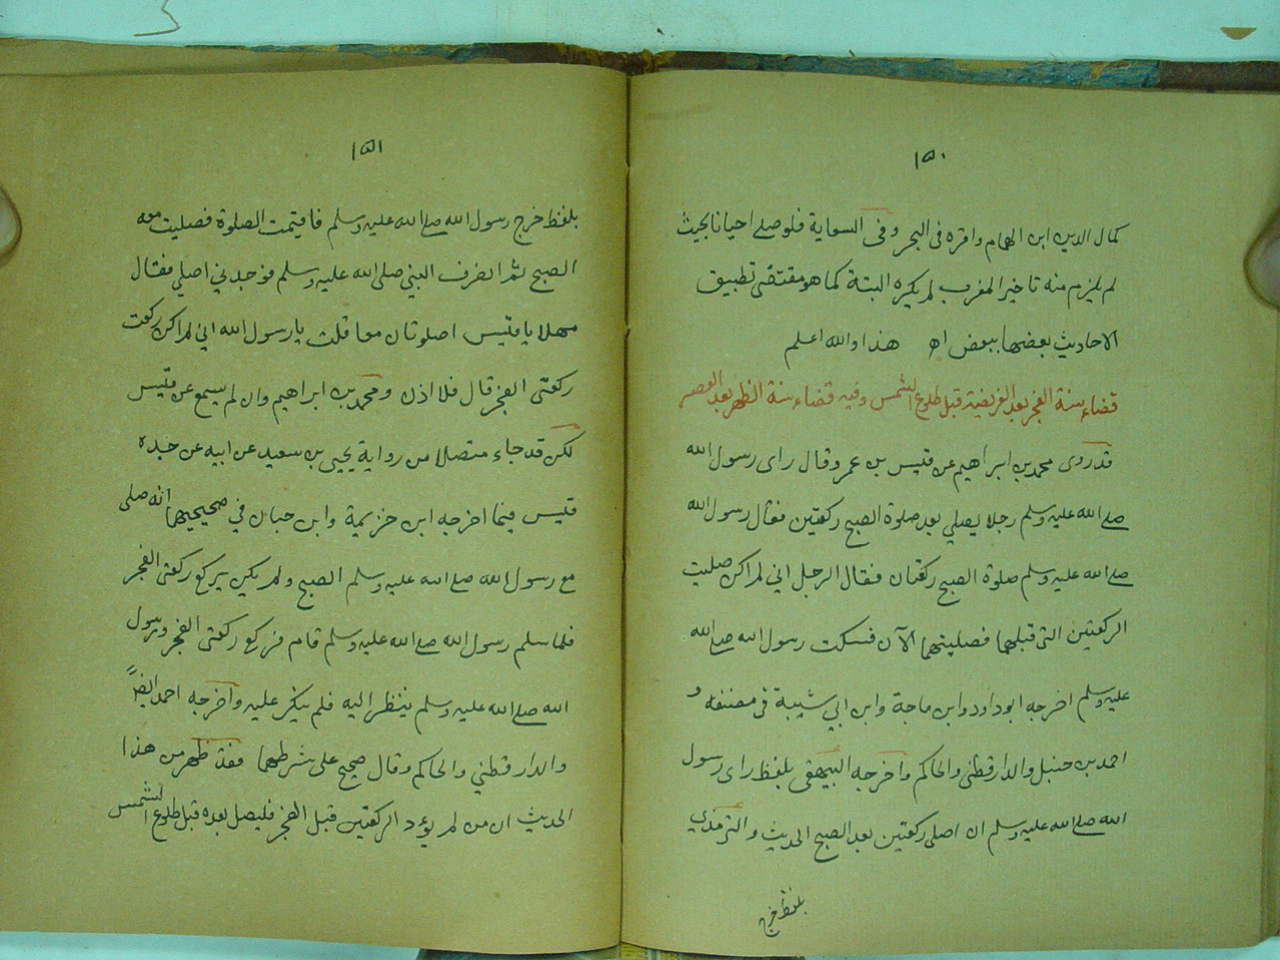 ١٥٠
كمال الدين ابن الهمام واقره فى البحر وفى السعاية فلو صلے احيانا بحيث
لم يلزم منه تاخير المغرب لم يكره البتة كما هو مقتضى تطبيق
الاحاديث بعضها ببعض اھ هذا والله اعلم
قضاء سنة الفجر بعد الفريضة قبل طلوع الشمس وفيه قضاء سنة الظهر بعد العصر
قد روى محمد بن ابراهيم عن قيس بن عمرو قال راى رسول الله
صلے الله عليه وسلم رجلا يصلي بعد صلوة الصبح ركعتين فقال رسول الله
صلے الله عليه وسلم صلوة الصبح ركعتان فقال الرجل اني لم اكن صليت
الركعتين التى قبلهما فصليتهما الآن فسكت رسول الله صلے الله
عليه وسلم اخرجه ابو داود وابن ماجة وابن ابي شيبة فى مصنفه و
احمد بن حنبل والدارقطنى والحاكم واخرجه البيهقى بلفظ راى رسول
الله صلے الله عليه وسلم ان اصلى ركعتين بعد الصبح الحديث والترمذي
بلفظ خرج
١٥١
بلفظ خرج رسول الله صلے الله عليه وسلم فاقيمت الصلوة فصليت معه
الصبح ثم انصرف النبي صلى الله عليه وسلم فوجدني اصلي فقال
مهلا يا قيس اصلوتان معا قلت يا رسول الله اني لم اكن ركعت
ركعتى الفجر قال فلا اذن ومحمد بن ابراهيم وان لم يسمع عن قيس
لكن قد جاء متصلا من رواية يحيى بن سعيد عن ابيه عن جده
قيس فيما اخرجه ابن خزيمة وابن حبان في صحيحيهما انه صلى
مع رسول الله صلے الله عليه وسلم الصبح ولم يكن يركع ركعتى الفجر
فلما سلم رسول الله صلے الله عليه وسلم قام فركع ركعتى الفجر ورسول
الله صلے الله عليه وسلم ينظر اليه فلم ينكر عليه واخرجه احمد ايضاً
والدارقطني والحاكم وقال صحيح على شرطهما فقد ظهر من هذا
الحديث ان من لم يؤد الركعتين قبل الفجر فليصل بعده قبل طلوع الشمس